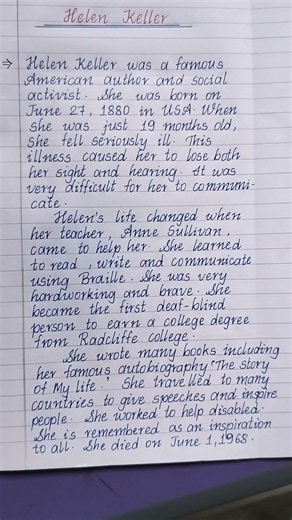 Helen Keller
→ Helen Keller was a famous
American author and social
activist. She was born on
June 27, 1880 in USA. When
she was just 19 months old,
she fell seriously ill. This
illness caused her to lose both
her sight and hearing. It was
very difficult for her to communi-
cate.
Helen's life changed when
her teacher, Anne Sullivan,
came to help her. She learned
to read, write and communicate
using Braille. She was very
hardworking and brave. She
became the first deaf-blind
person to earn a college degree
from Radcliffe college.
She wrote many books including
her famous autobiography 'The Story
of My life.' She travelled to many
countries to give speeches and inspire
people. She worked to help disabled.
She is remembered as an inspiration
to all. She died on June 1, 1968.